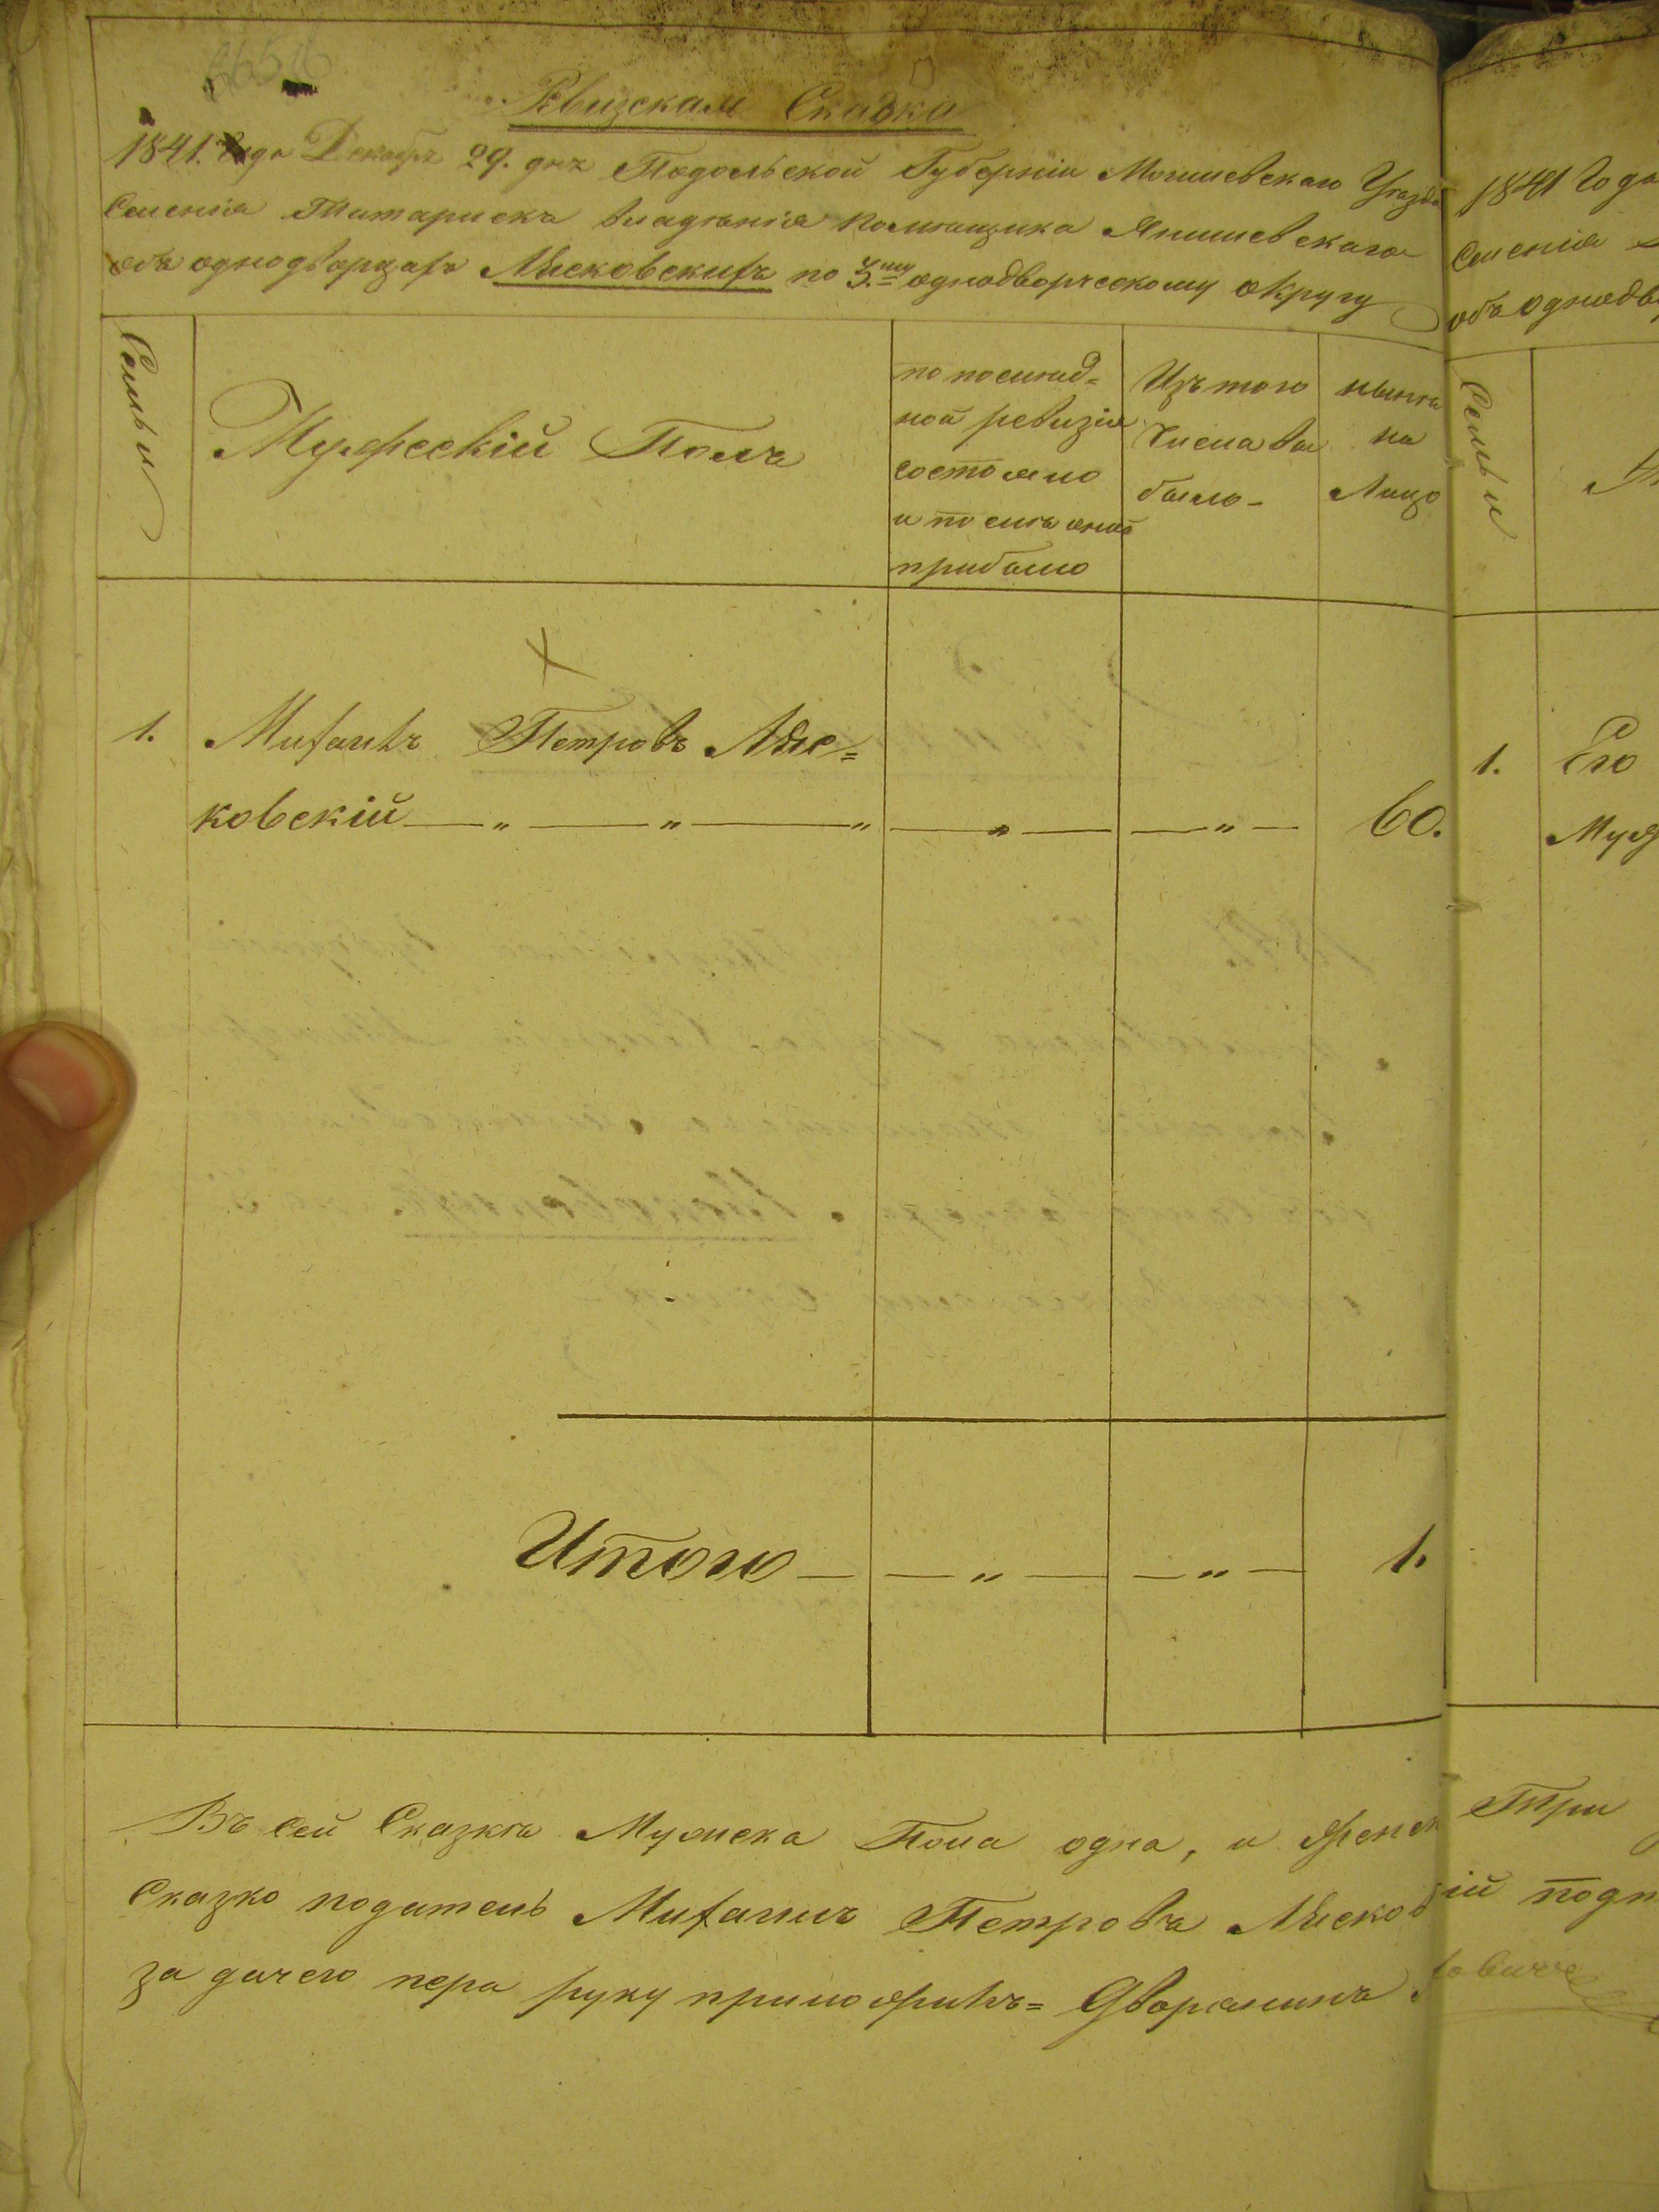 Ревизская Сказка
1841. Года Декабря 29. дня Подольской Губерніи Могилевскаго Уезда
Селенія Татариска владѣнія Помѣщика Янишевскаго
объ однодворцахъ Лясковскихъ по 3.му однодворческому округу
Семьи
Мужескій Полъ
по послѣд=
ной ревизіи
состояло
и послѣ оной
прибыло
Изъ того
числа вы
было
нынѣ
на
Лицо
1. Михаилъ Петровъ Ляс=
ковскій — „ — „ — „ — „ — — „ — 60.
Итого — — „ — — „ — 1.
Въ сей Сказкѣ Мужеска Пола одна, и женск
Сказко податель Михаилъ Петровъ Лясков
за дачею пера руку приложилъ= Дворянинъ
1841 Года
Селенія
объ однодв
Семьи
1. Его
Три
кій подп